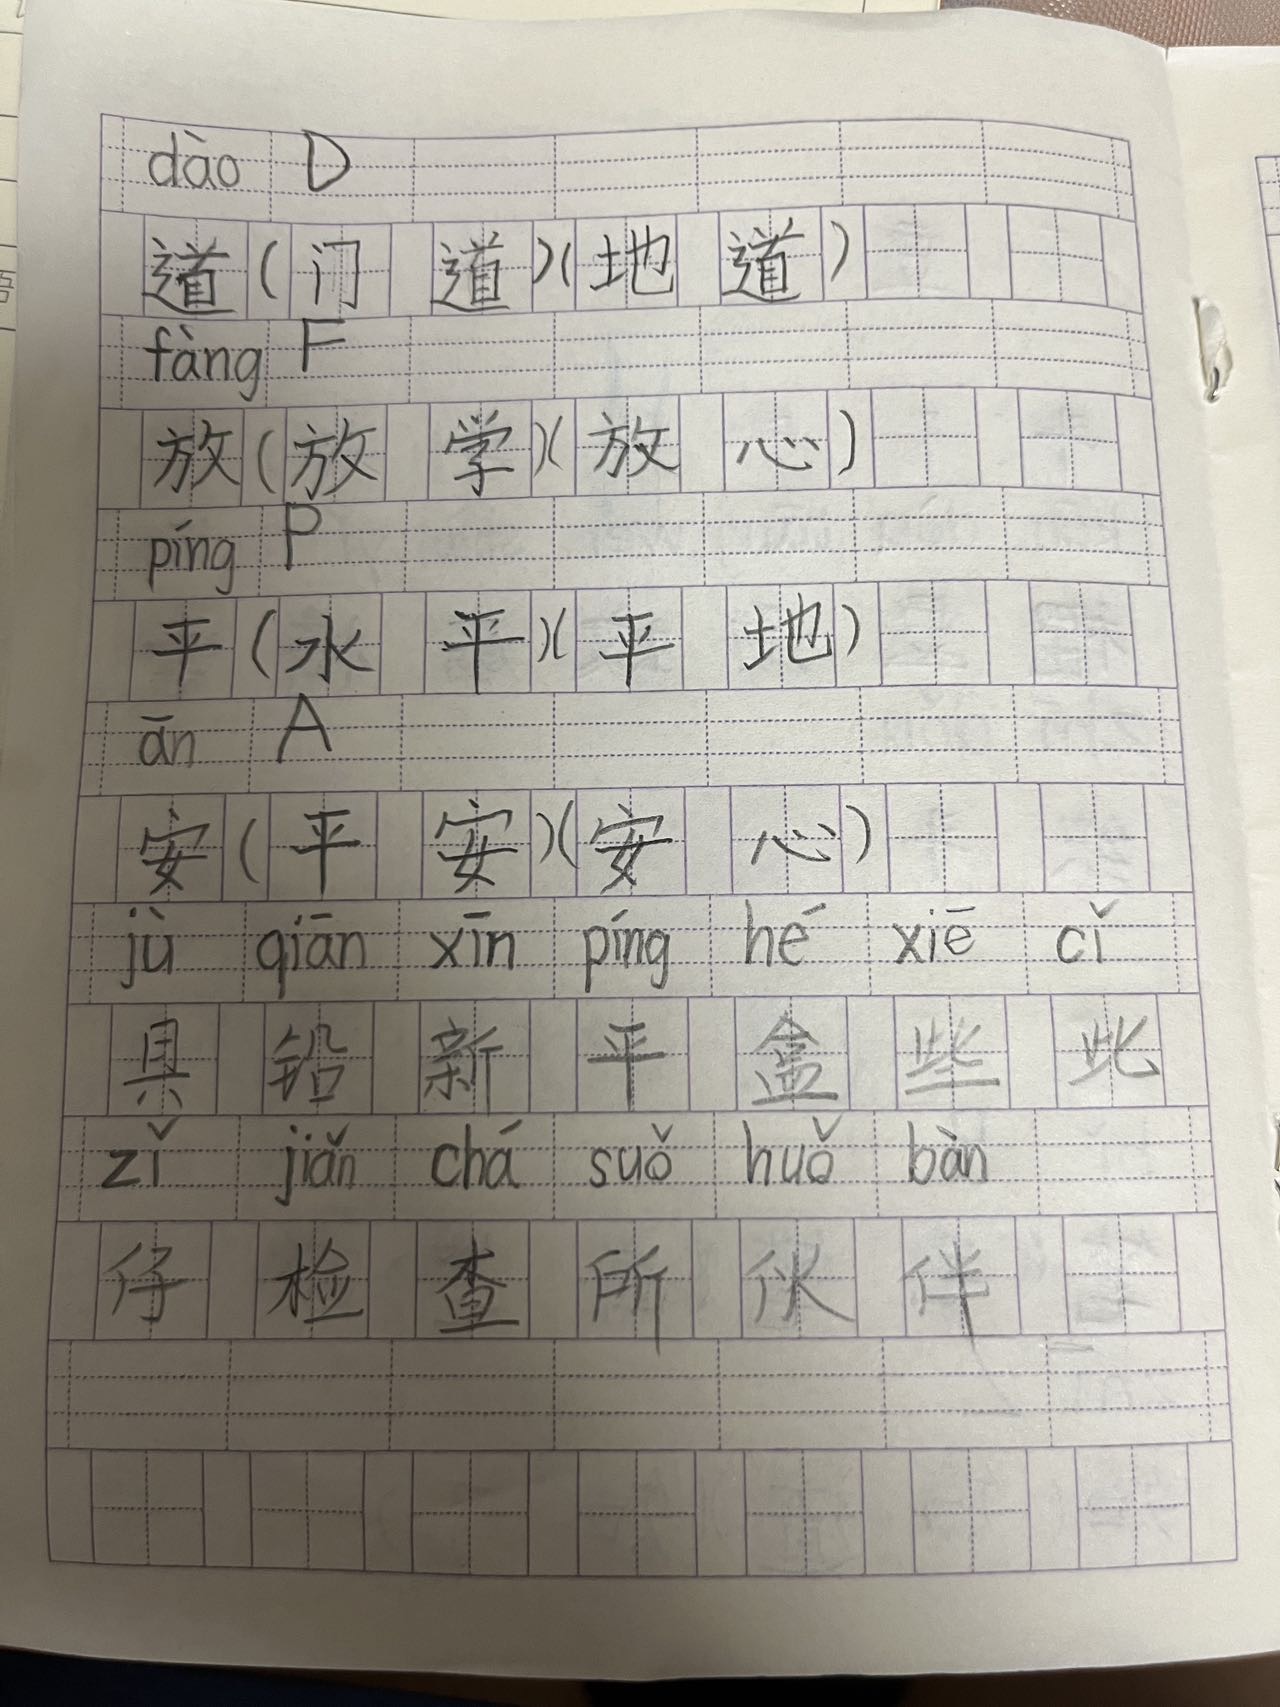 dào D
道(门道)(地道)
fàng F
放(放学)(放心)
píng P
平(水平)(平地)
ān A
安(平安)(安心)
jù qiān xīn píng hé xiē cǐ
具铅新平盒些此
zǐ jiǎn chá suǒ huǒ bàn
仔检查所伙伴
语